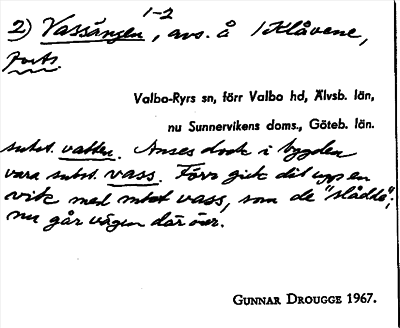 1-2
2) Vassängen, avs. å 1 Klåvene,
forts.
Valbo-Ryrs sn, förr Valbo hd, Älvsb. län,
nu Sunnervikens doms., Göteb. län.
subst. vatten. Anses dock i bygden
vara subst. vass. Förr gick dit upp en
vik med mket vass, som de "slådde";
nu går vägen där över.
GUNNAR DROUGGE 1967.